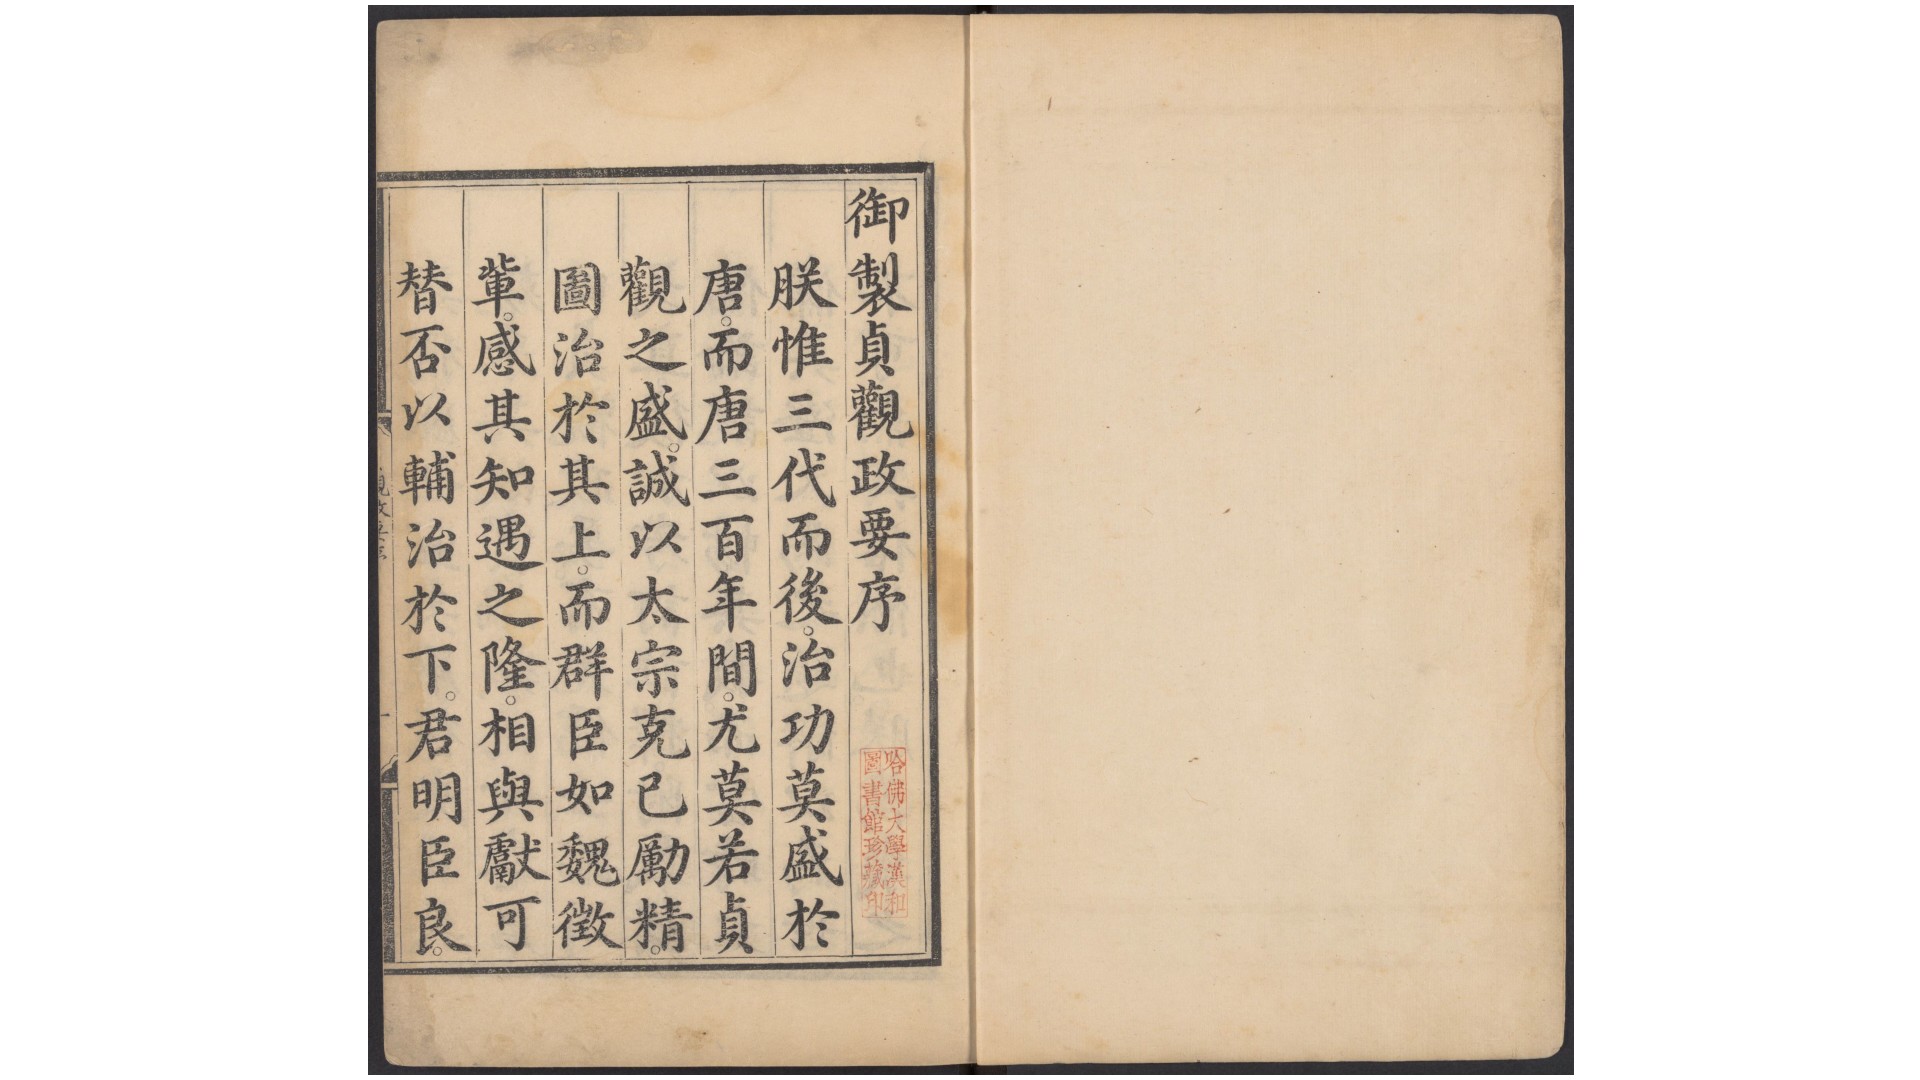 御製貞觀政要序
朕惟三代而後。治功莫盛於
唐。而唐三百年間。尤莫若貞
觀之盛。誠以太宗克己勵精。
圖治於其上。而群臣如魏徵
輩。感其知遇之隆。相與獻可
替否以輔治於下。君明臣良。
哈佛大學漢和
圖書館珍藏印